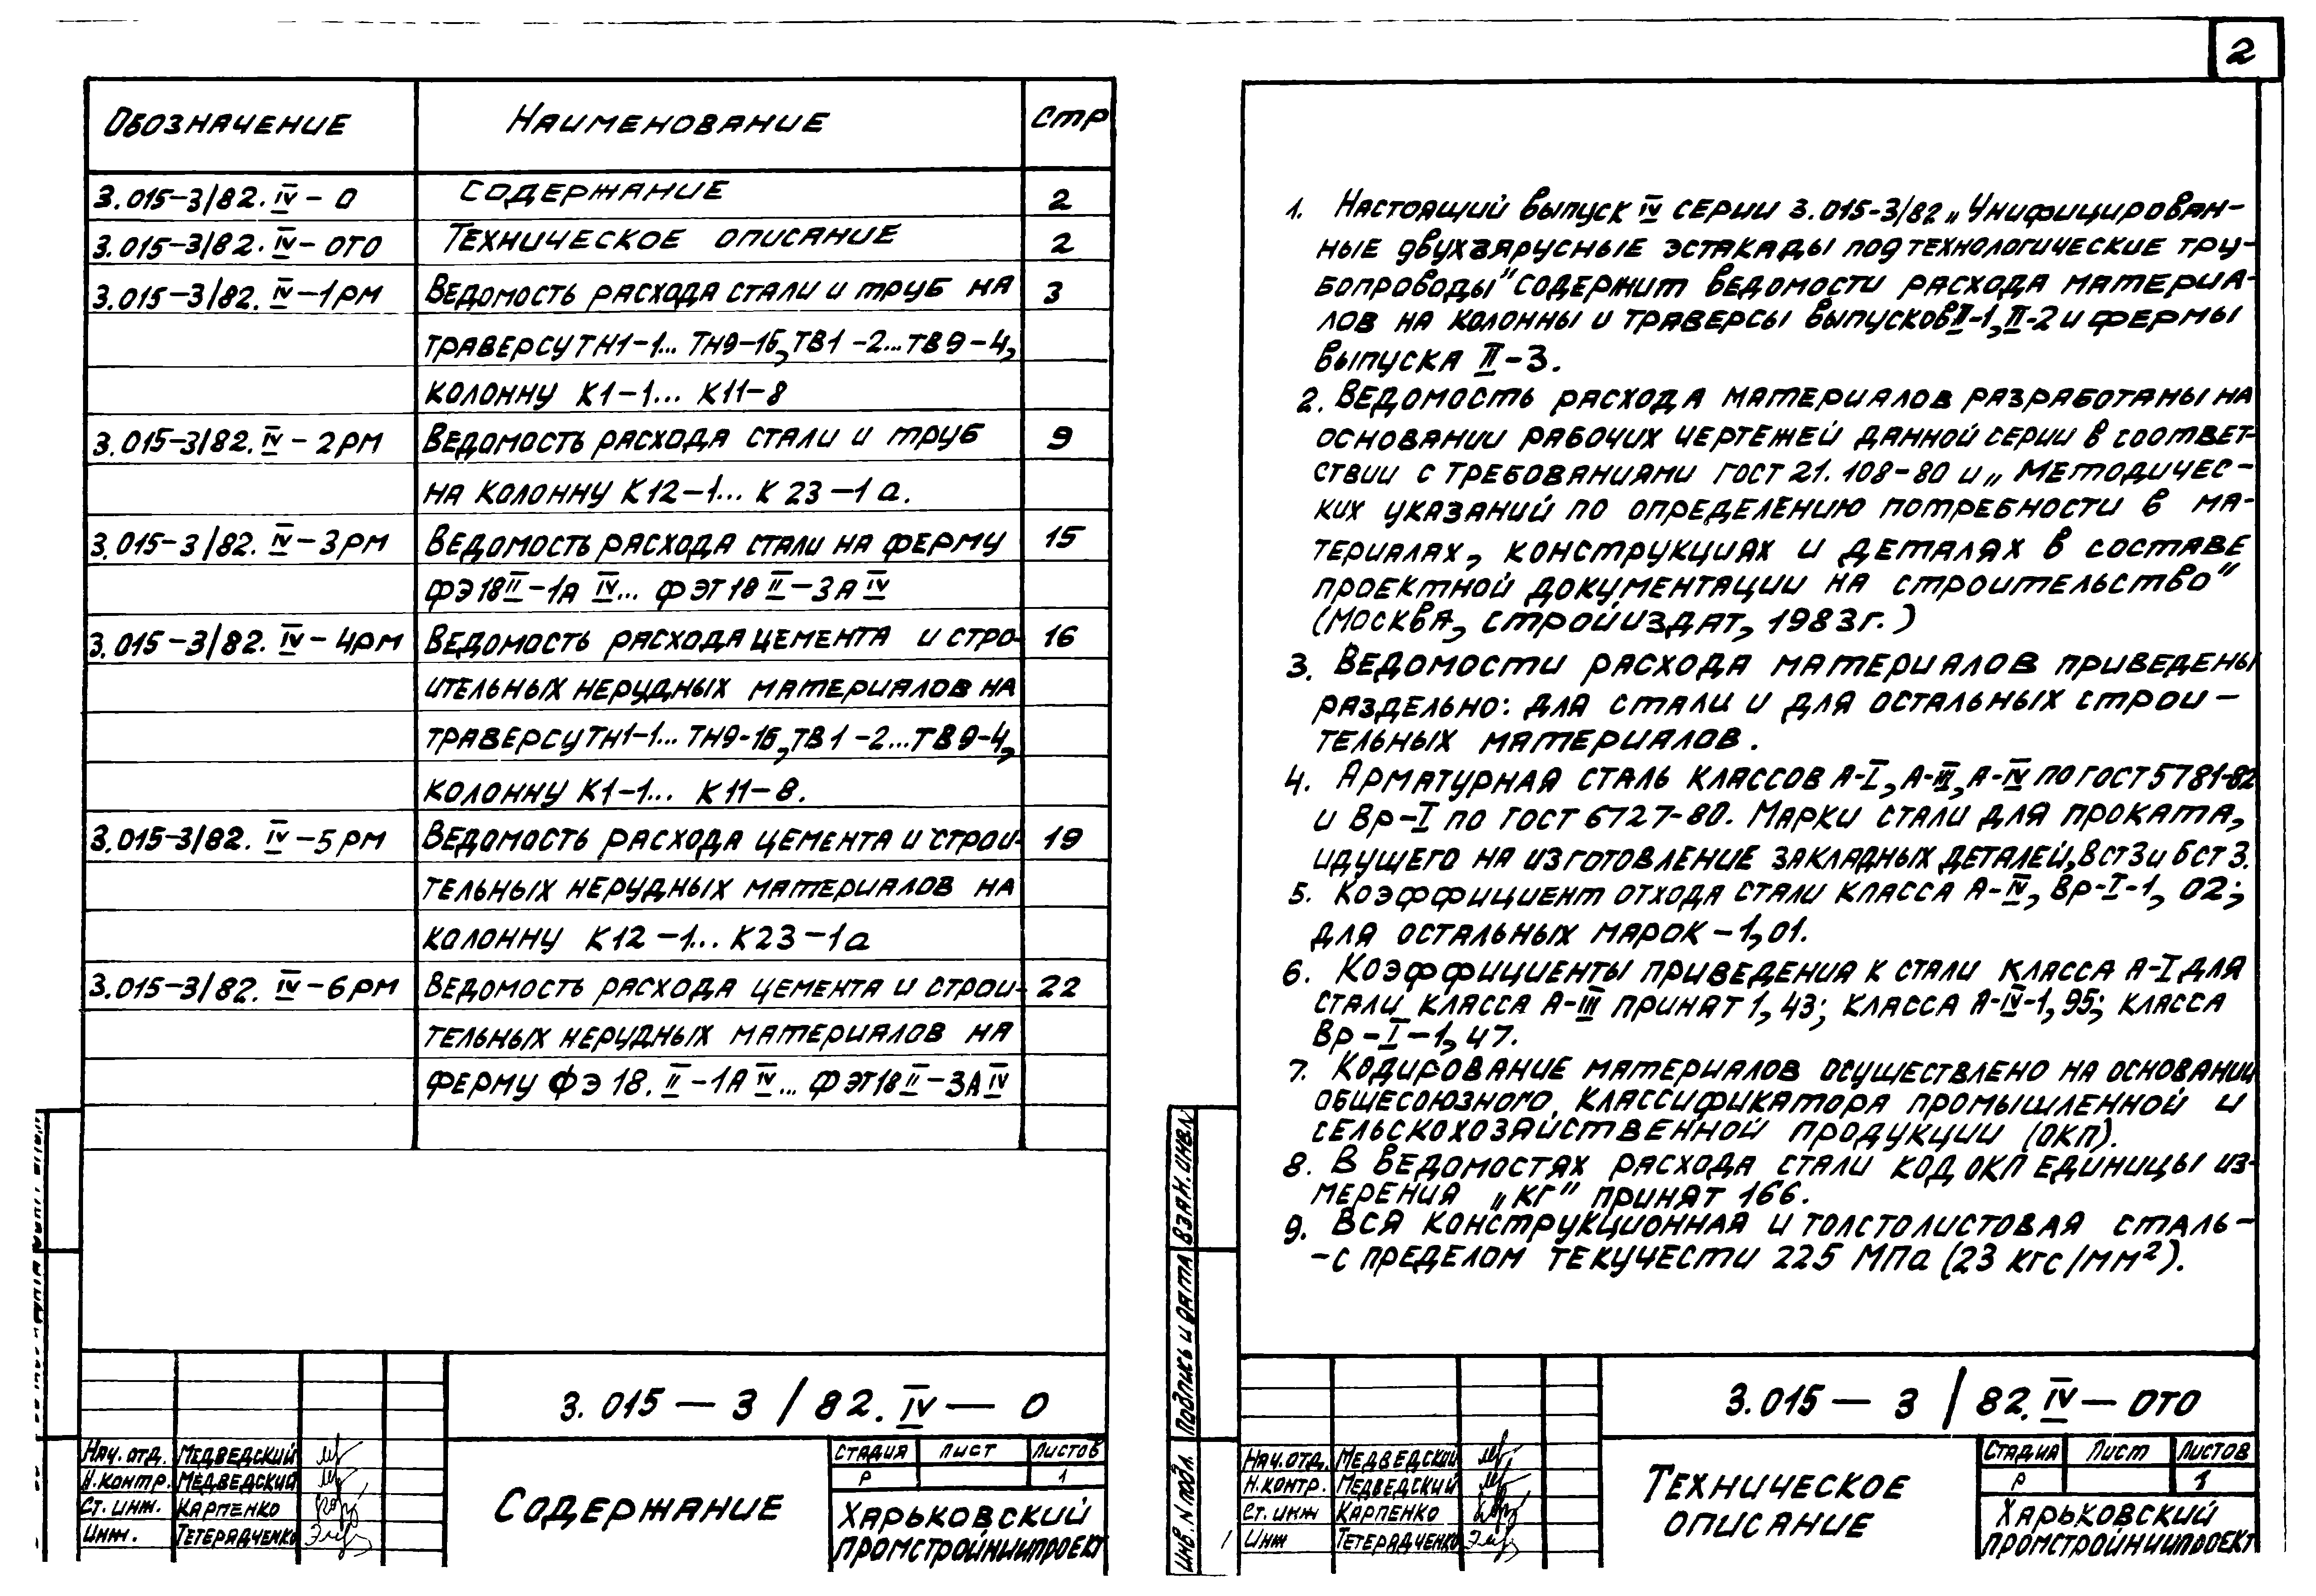 2
Обозначение Наименование Стр
3.015-3/82.IV-0 Содержание 2
3.015-3/82.IV-ОТО Техническое описание 2
3.015-3/82.IV-1РМ Ведомость расхода стали и труб на 3
траверсу ТН1-1... ТН9-1б, ТВ1-2...ТВ9-4,
колонну К1-1... К11-8
3.015-3/82.IV-2РМ Ведомость расхода стали и труб 9
на колонну К12-1... К23-1а.
3.015-3/82.IV-3РМ Ведомость расхода стали на ферму 15
ФЭ18II-1АIV... ФЭТ18II-3АIV
3.015-3/82.IV-4РМ Ведомость расхода цемента и стро- 16
ительных нерудных материалов на
траверсу ТН1-1... ТН9-1б, ТВ1-2...ТВ9-4,
колонну К1-1... К11-8.
3.015-3/82.IV-5РМ Ведомость расхода цемента и строи- 19
тельных нерудных материалов на
колонну К12-1... К23-1а
3.015-3/82.IV-6РМ Ведомость расхода цемента и строи- 22
тельных нерудных материалов на
ферму ФЭ18.II-1АIV... ФЭТ18II-3АIV
3.015-3/82.IV-0
Нач.отд. Медведский
Н.контр. Медведский
Ст. инж. Карпенко
Инж. Тетерядченко
Содержание
Стадия Лист Листов
Р 1
Харьковский
Промстройниипроект
1. Настоящий выпуск IV серии 3.015-3/82 „Унифицирован-
ные двухъярусные эстакады под технологические тру-
бопроводы" содержит ведомости расхода материа-
лов на колонны и траверсы выпусков II-1, II-2 и фермы
выпуска II-3.
2. Ведомость расхода материалов разработаны на
основании рабочих чертежей данной серии в соответ-
ствии с требованиями ГОСТ 21.108-80 и „Методичес-
ких указаний по определению потребности в ма-
териалах, конструкциях и деталях в составе
проектной документации на строительство"
(Москва, Стройиздат, 1983г.)
3. Ведомости расхода материалов приведены
раздельно: для стали и для остальных строи-
тельных материалов.
4. Арматурная сталь классов А-I, А-III, А-IV по ГОСТ 5781-82
и Вр-I по ГОСТ 6727-80. Марки стали для проката,
идущего на изготовление закладных деталей, Вст3 и Бст3.
5. Коэффициент отхода стали класса А-IV, Вр-I-1,02;
для остальных марок-1,01.
6. Коэффициенты приведения к стали класса А-I для
стали класса А-III принят 1,43; класса А-IV-1,95; класса
Вр-I-1,47.
7. Кодирование материалов осуществлено на основании
общесоюзного классификатора промышленной и
сельскохозяйственной продукции (ОКП).
8. В ведомостях расхода стали код ОКП единицы из-
мерения „кг" принят 166.
9. Вся конструкционная и толстолистовая сталь-
-с пределом текучести 225 МПа (23 кгс/мм²).
Инв.N подл. Подпись и дата Взам.инв.N
3.015-3/82.IV-ОТО
Нач.отд. Медведский
Н.контр. Медведский
Ст.инж Карпенко
Инж Тетерядченко
Техническое
описание
Стадия Лист Листов
Р 1
Харьковский
Промстройниипроект